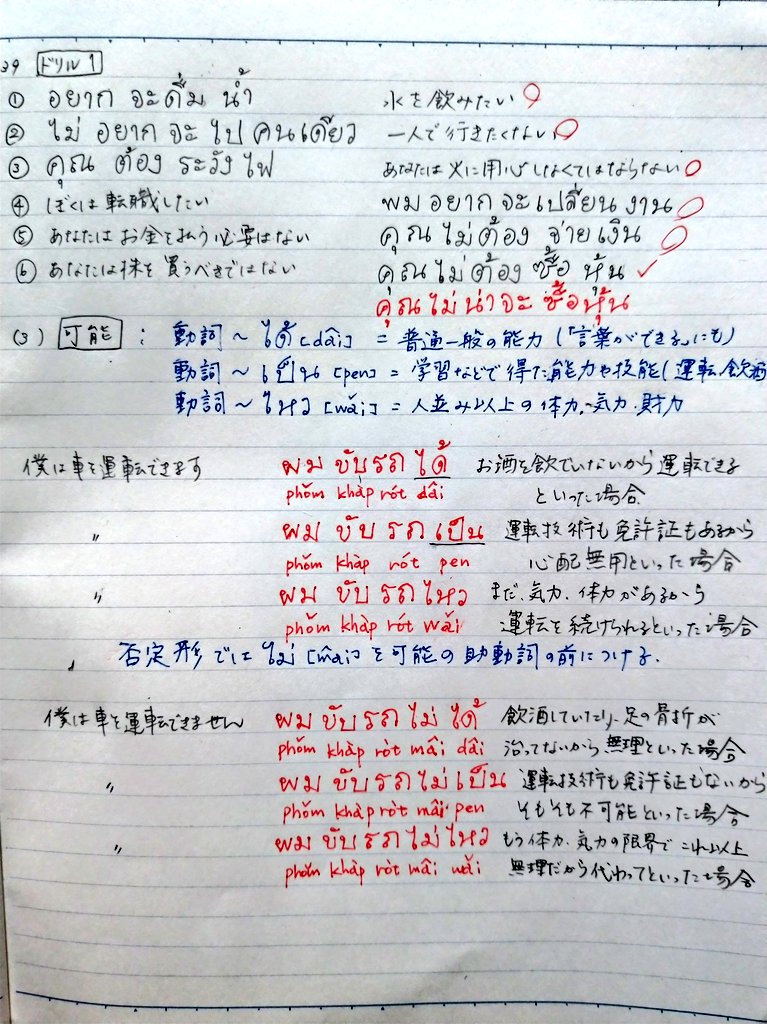 39 ドリル1
① อยาก จะดื่ม น้ำ 水を飲みたい
② ไม่ อยาก จะ ไป คนเดียว 一人で行きたくない
③ คุณ ต้อง ระวัง ไฟ あなたは火に用心しなくてはならない
④ ぼくは転職したい ผม อยาก จะ เปลี่ยน งาน
⑤ あなたはお金を払う必要はない คุณ ไม่ ต้อง จ่าย เงิน
⑥ あなたは株を買うべきではない คุณ ไม่ ต้อง ซื้อ หุ้น ✓
คุณ ไม่ น่า จะ ซื้อ หุ้น
(3) 可能 : 動詞～ได้ [dâi] = 普通一般の能力 (「言葉ができる」にも)
動詞～เป็น [pen] = 学習などで得た能力や技能(運転、飲酒
動詞～ไหว [wǎi] = 人並み以上の体力、気力、財力
僕は車を運転できます ผม ขับ รถ ได้ お酒を飲んでいないから運転できる
phǒm khàp rót dâi といった場合
〃 ผม ขับ รถ เป็น 運転技術も免許証もあるから
phǒm khàp rót pen 心配無用といった場合
〃 ผม ขับ รถ ไหว まだ、気力、体力があるから
phǒm khàp rót wǎi 運転を続けられるといった場合
否定形では ไม่ [mâi] を可能の助動詞の前につける.
僕は車を運転できません ผม ขับ รถ ไม่ ได้ 飲酒していたり、足の骨折が
phǒm khàp ròt mâi dâi 治ってないから無理といった場合
〃 ผม ขับ รถ ไม่ เป็น 運転技術も免許証もないから
phǒm khàp ròt mâi pen そもそも不可能といった場合
〃 ผม ขับ รถ ไม่ ไหว もう体力、気力の限界でこれ以上
phǒm khàp ròt mâi wǎi 無理だから代わってといった場合